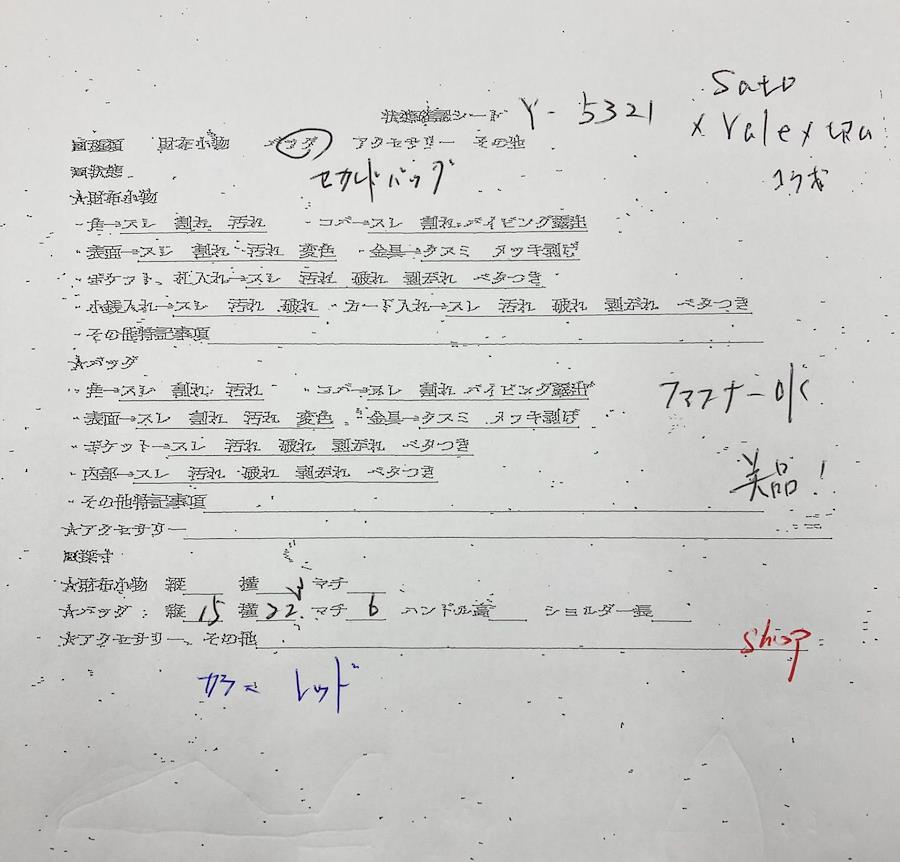 Sato
状態確認シート Y-5321
× Valextra
コラボ
■種類 財布小物 バッグ アクセサリー その他
■状態
セカンドバッグ
★財布小物
・角→スレ 割れ 汚れ ・コバ→スレ 割れ パイピング露出
・表面→スレ 割れ 汚れ 変色 ・金具→クスミ メッキ剥げ
・ポケット、札入れ→スレ 汚れ 破れ 剥がれ ベタつき
・小銭入れ→スレ 汚れ 破れ ・カード入れ→スレ 汚れ 破れ 剥がれ ベタつき
・その他特記事項
★バッグ
・角→スレ 割れ 汚れ ・コバ→スレ 割れ パイピング露出
ファスナーOK
・表面→スレ 割れ 汚れ 変色 ・金具→クスミ メッキ剥げ
・ポケット→スレ 汚れ 破れ 剥がれ ベタつき
・内部→スレ 汚れ 破れ 剥がれ ベタつき
美品!
・その他特記事項
★アクセサリー
■採寸
★財布小物 縦 横 マチ
★バッグ 縦 15 横 22 マチ 6 ハンドル高 ショルダー長
★アクセサリー、その他
shop
カラー レッド